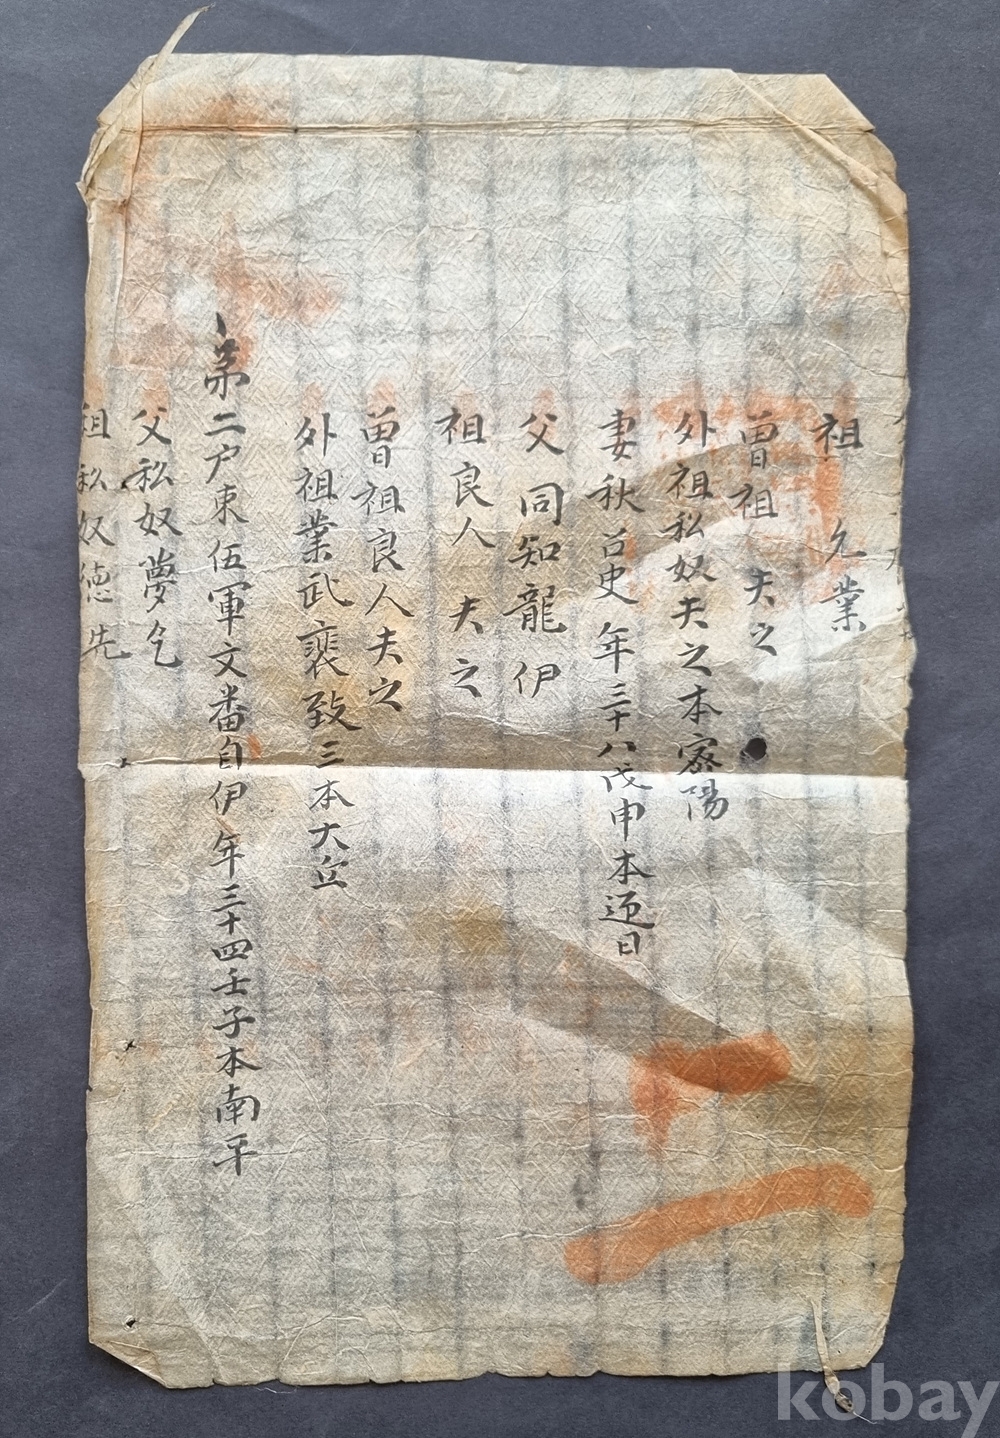 祖 允業
曽祖 夫之
外祖私奴夫之本密陽
妻秋召史年三十八戊申本延日
父同知龍伊
祖良人夫之
曽祖良人夫之
外祖業武裵致三本大丘
第二戶東伍軍文番自伊年三十四壬子本南平
父私奴夢乞
祖私奴德先
kobay